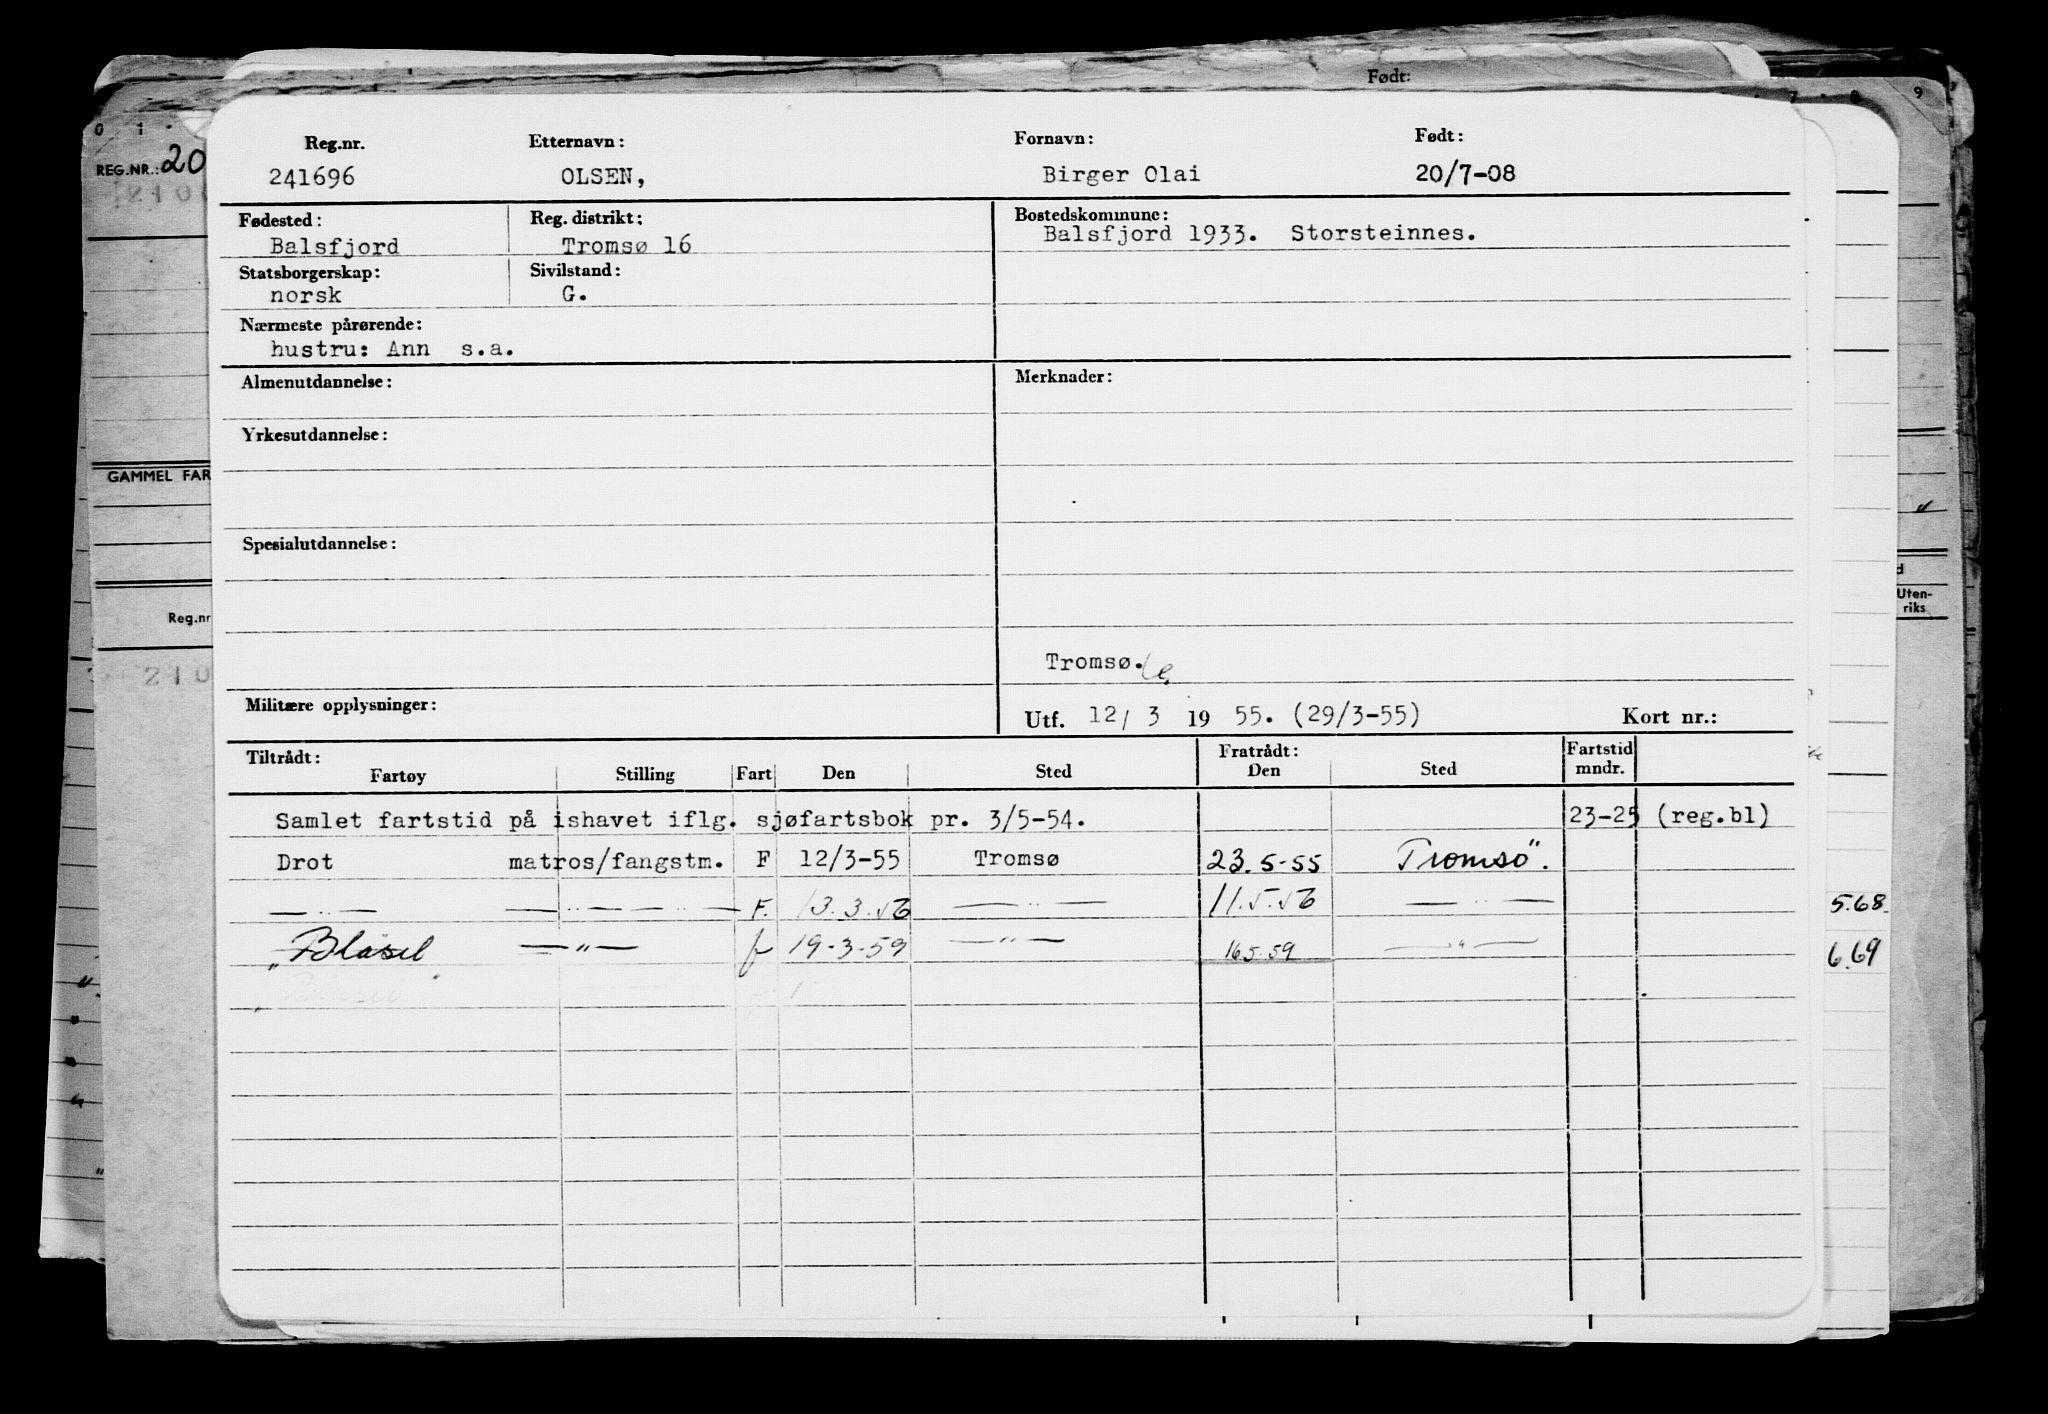 Født:
0 1 7 8 9
REG.NR.: 20
Reg.nr. Etternavn: Fornavn: Født:
241696 OLSEN, Birger Olai 20/7-08
Fødested: Reg. distrikt: Bostedskommune:
Balsfjord Tromsø 16 Balsfjord 1933. Storsteinnes.
Statsborgerskap: Sivilstand:
norsk G.
Nærmeste pårørende:
hustru: Ann s.a.
Almenutdannelse: Merknader:
Yrkesutdannelse:
GAMMEL FAR
Spesialutdannelse:
Uten-
riks
Reg.nr
Tromsø.
210
Militære opplysninger: Utf. 12/ 3 19 55. (29/3-55) Kort nr.:
Tiltrådt: Fratrådt: Fartstid
Fartøy Stilling Fart Den Sted Den Sted mndr.
Samlet fartstid på ishavet iflg. sjøfartsbok pr. 3/5-54. 23-25 (reg.bl)
Drot matros/fangstm. F 12/3-55 Tromsø 23.5-55 Tromsö".
—"— —"—"— F. 13.3.56 —"— 11.5.56 —"— 5.68.
"Blåsel —"— f 19-3-59 —"— 16.5.59 —"— 6.69